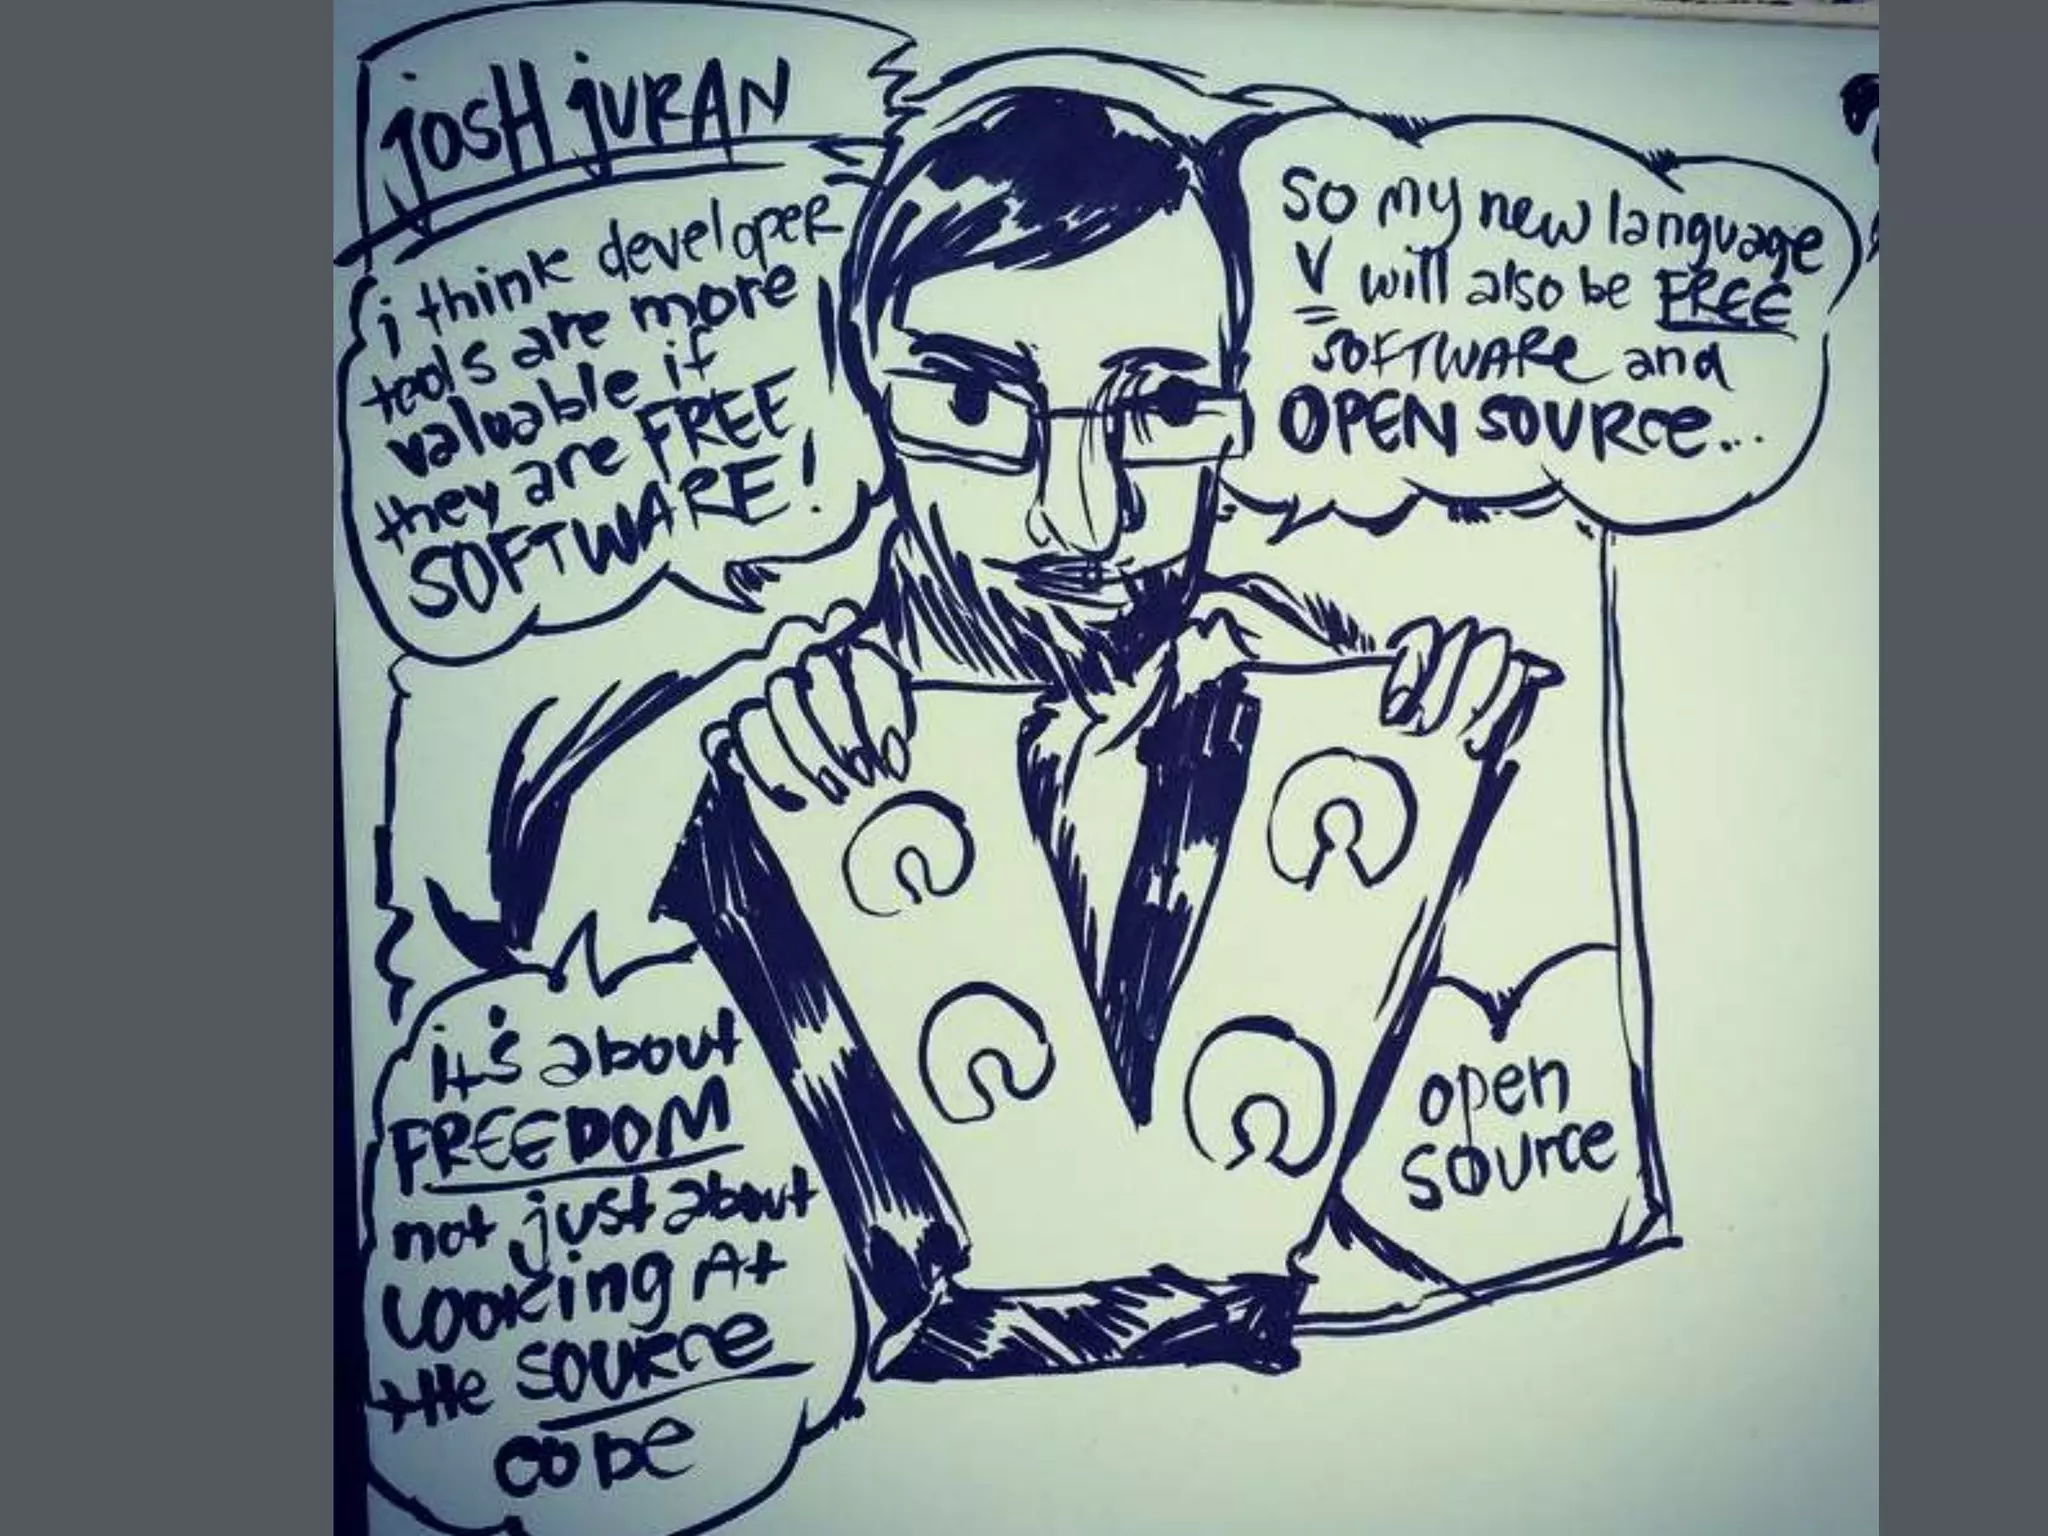 josH juRAN
i think developer
tools are more
valuable if
they are FREE
SOFTWARE!
so my new language
V will also be FREE
SOFTWARE and
OPEN SOURCE...
it's about
FREEDOM
not just about
looking At
tHe SOURCE
CODE
open
source